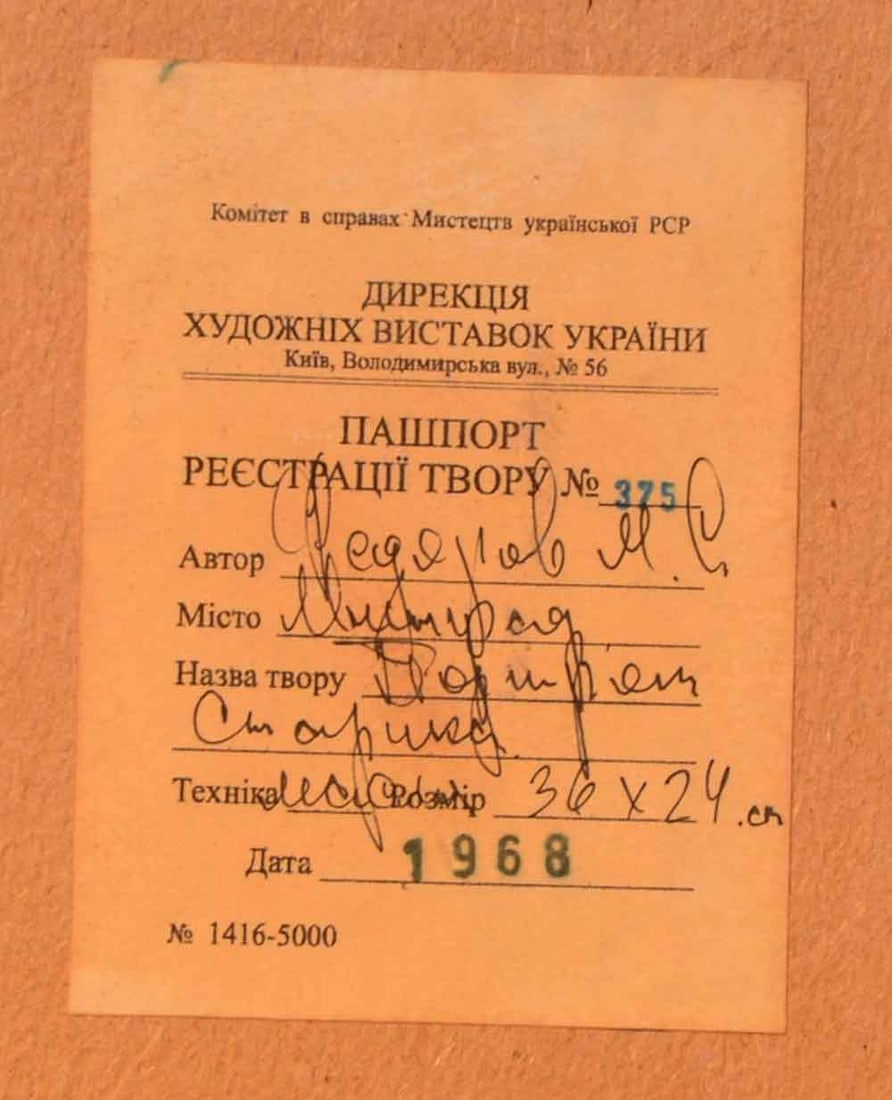 Комітет в справах Мистецтв української РСР
ДИРЕКЦІЯ
ХУДОЖНІХ ВИСТАВОК УКРАЇНИ
Київ, Володимирська вул., № 56
ПАШПОРТ
РЕЄСТРАЦІЇ ТВОРУ № 375
Автор М. С.
Місто
Назва твору Портрет
Старика
Техніка Розмір 36 х 24 .см
Дата 1968
№ 1416-5000